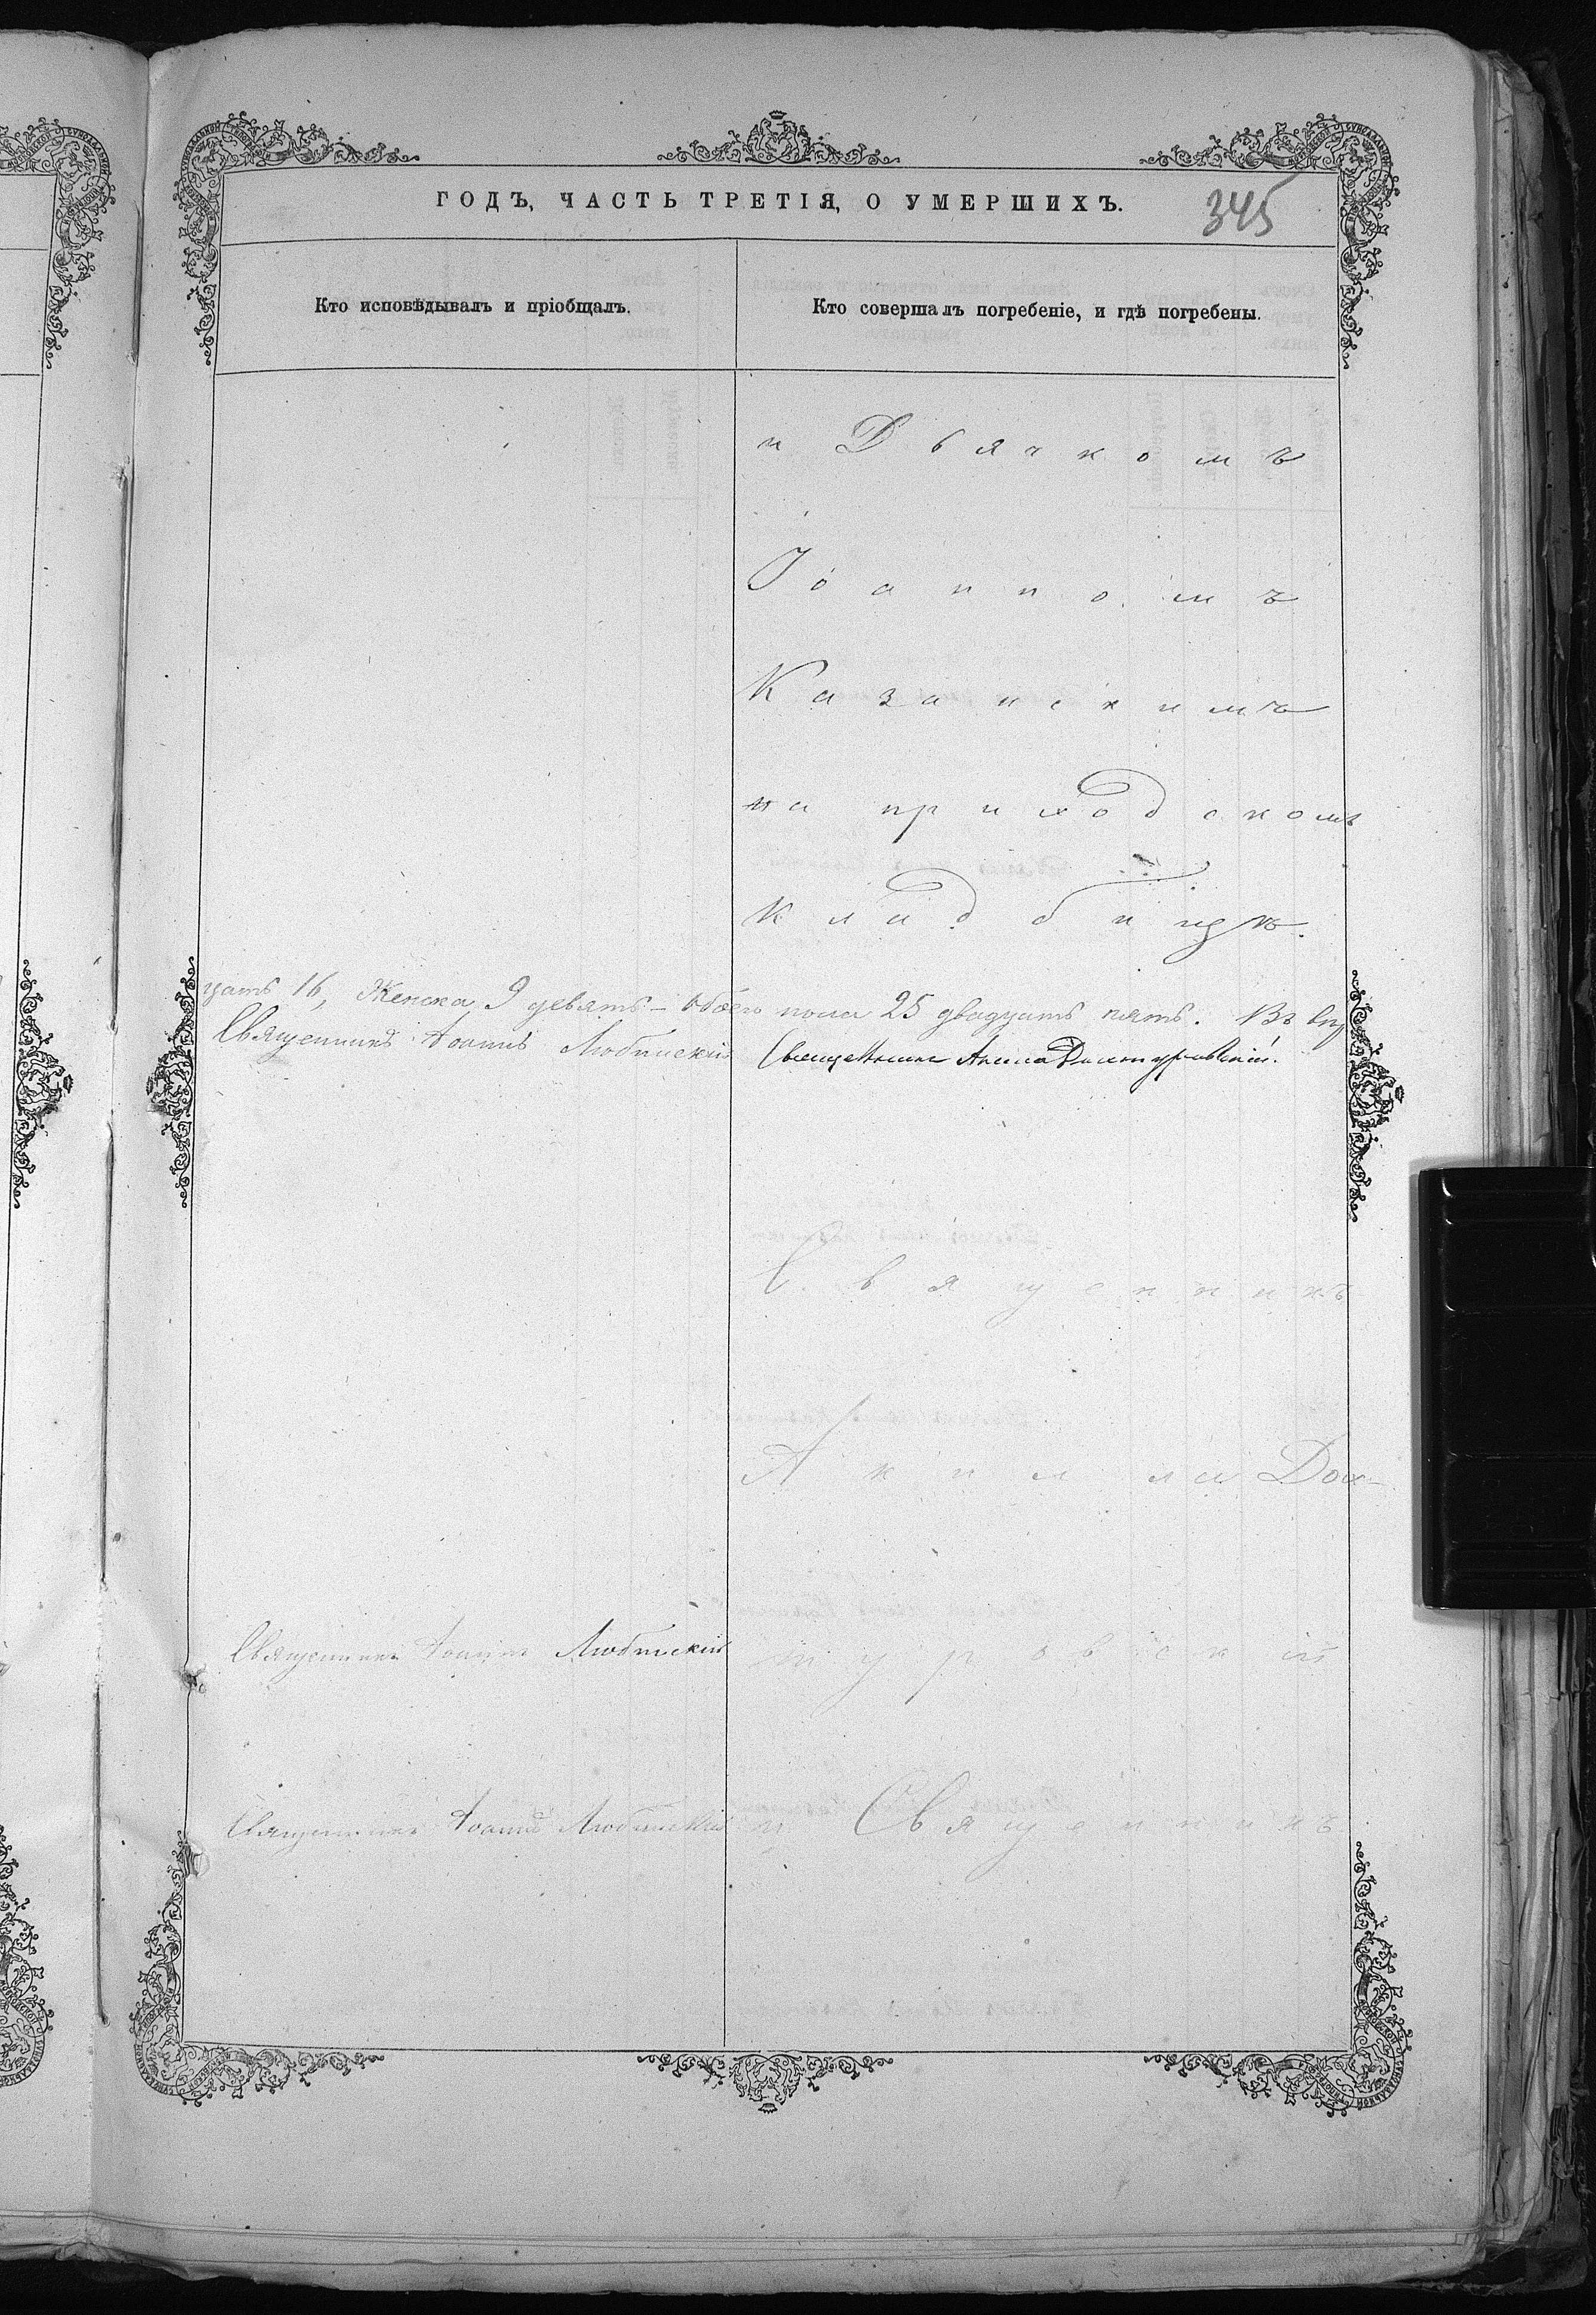 ГОДЪ, ЧАСТЬ ТРЕТІЯ, О УМЕРШИХЪ.
345
Кто исповѣдывалъ и пріобщалъ.
Кто совершалъ погребеніе, и гдѣ погребены.
и Дьячкомъ
Іоанномъ
Казанскимъ
на приходскомъ
кладбищѣ.
цать 16, Женска 9 девять – обоего пола 25 двадцать пять.
Священникъ Іоаннъ Любимскій
Священникъ Акила
Священникъ
Акилла Дос-
туровскій
Священникъ Іоаннъ Любимскій
Священникъ Іоаннъ Любимскій
Священникъ